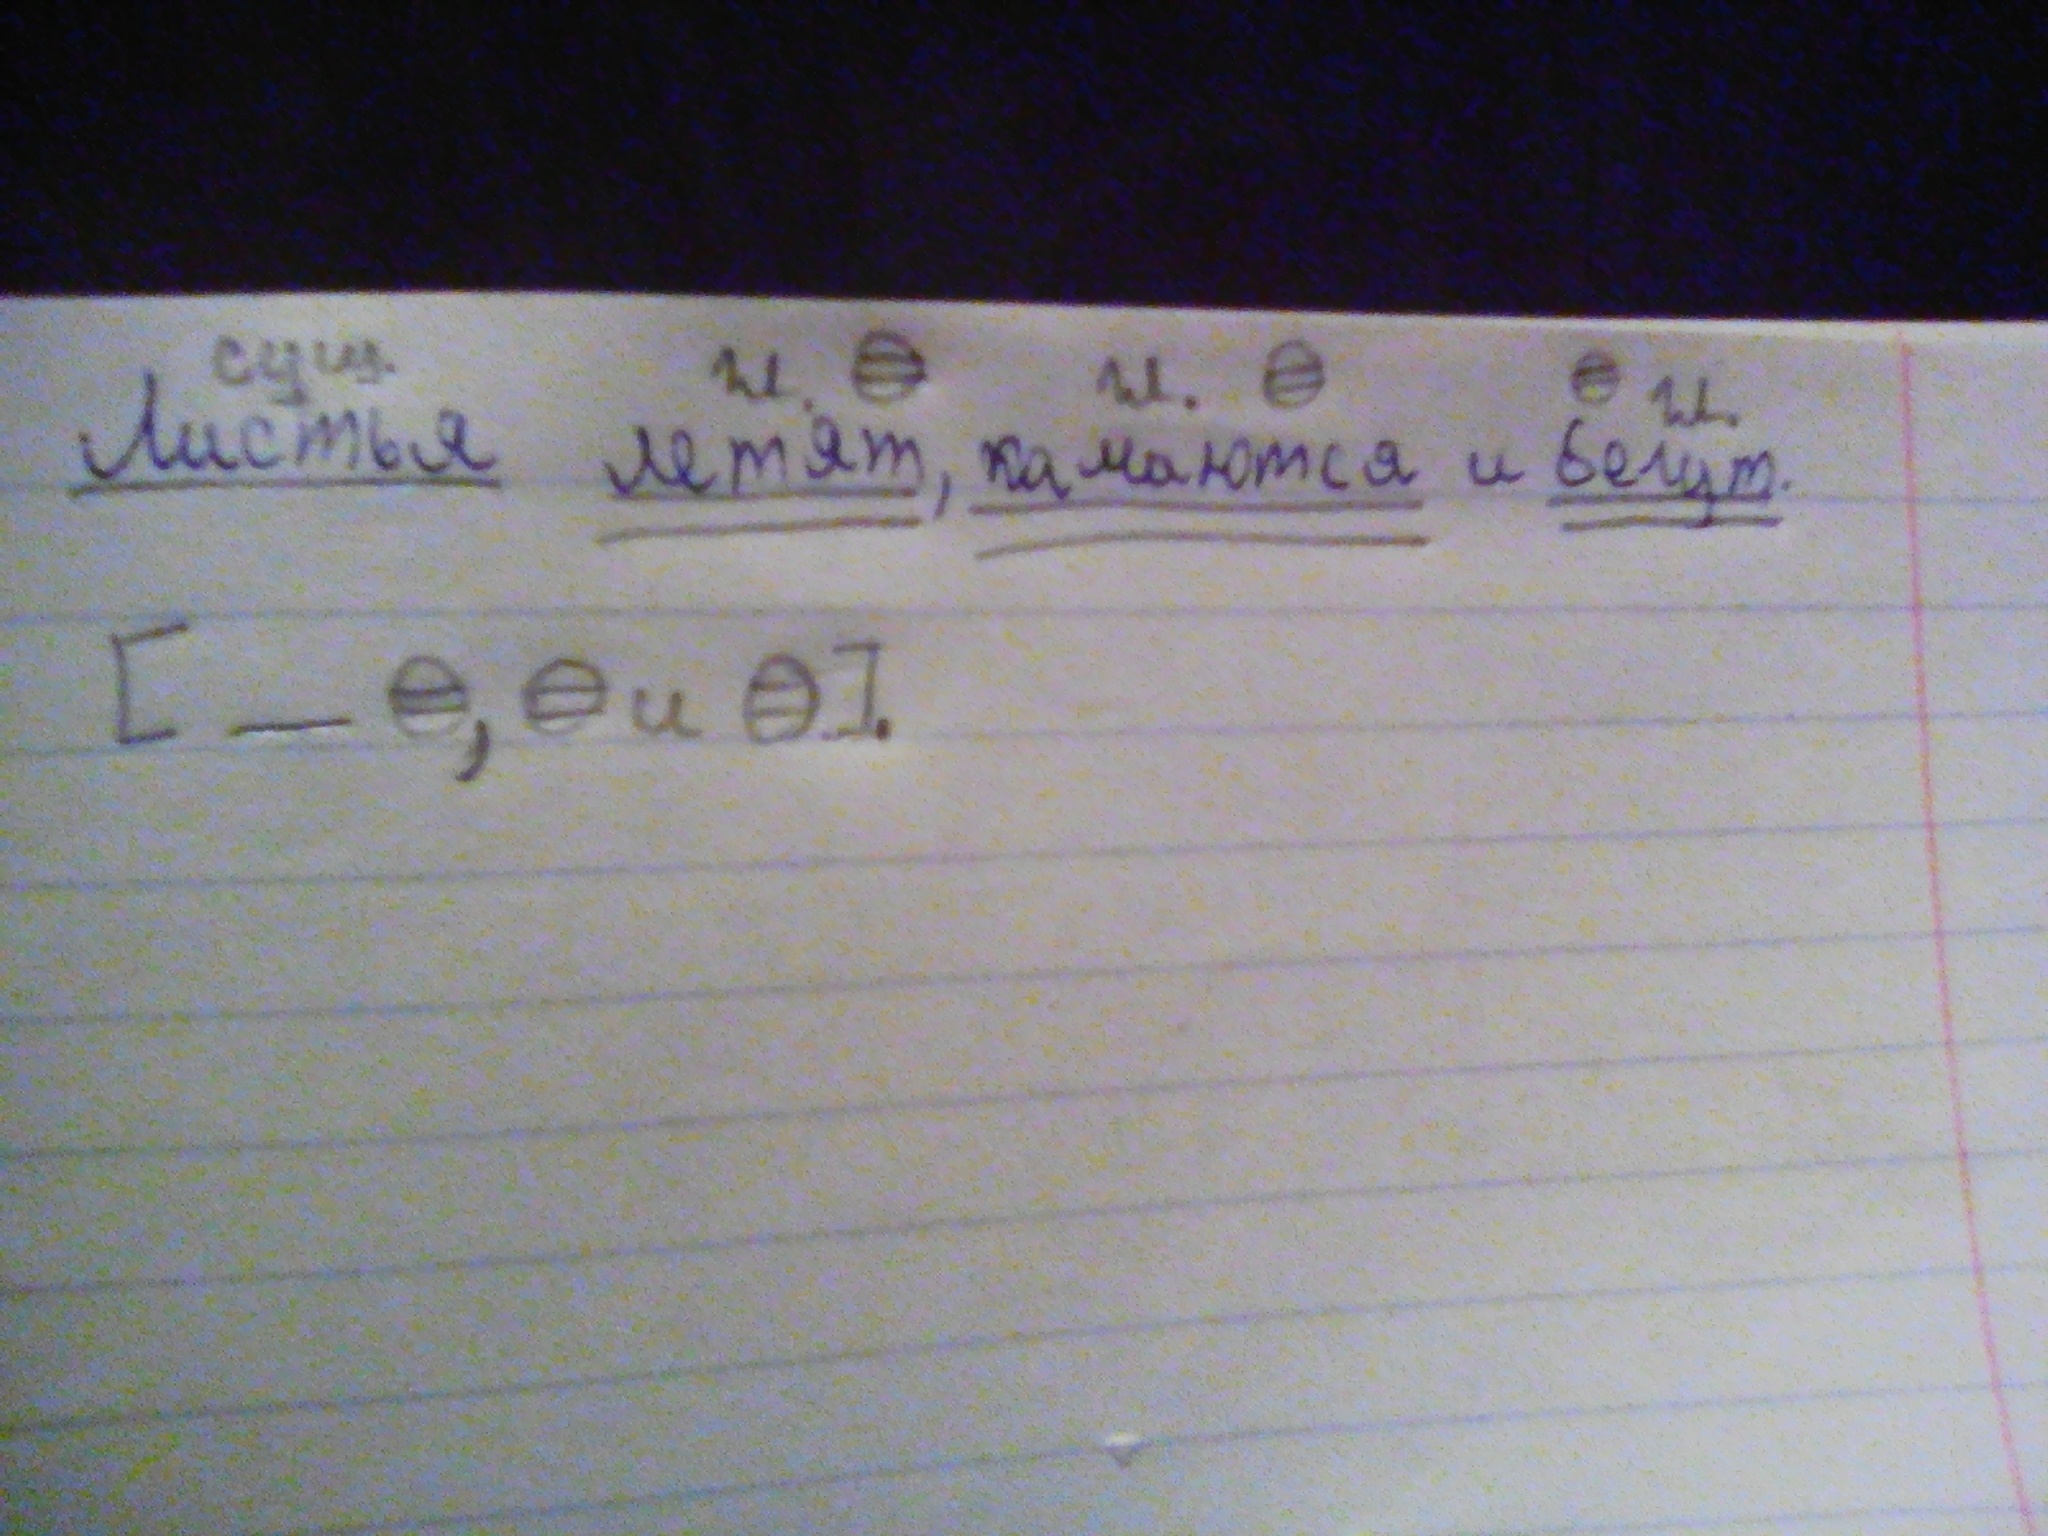 сущ. гл. гл. гл.
Листья летят, качаются и бегут.
[ — , и ].